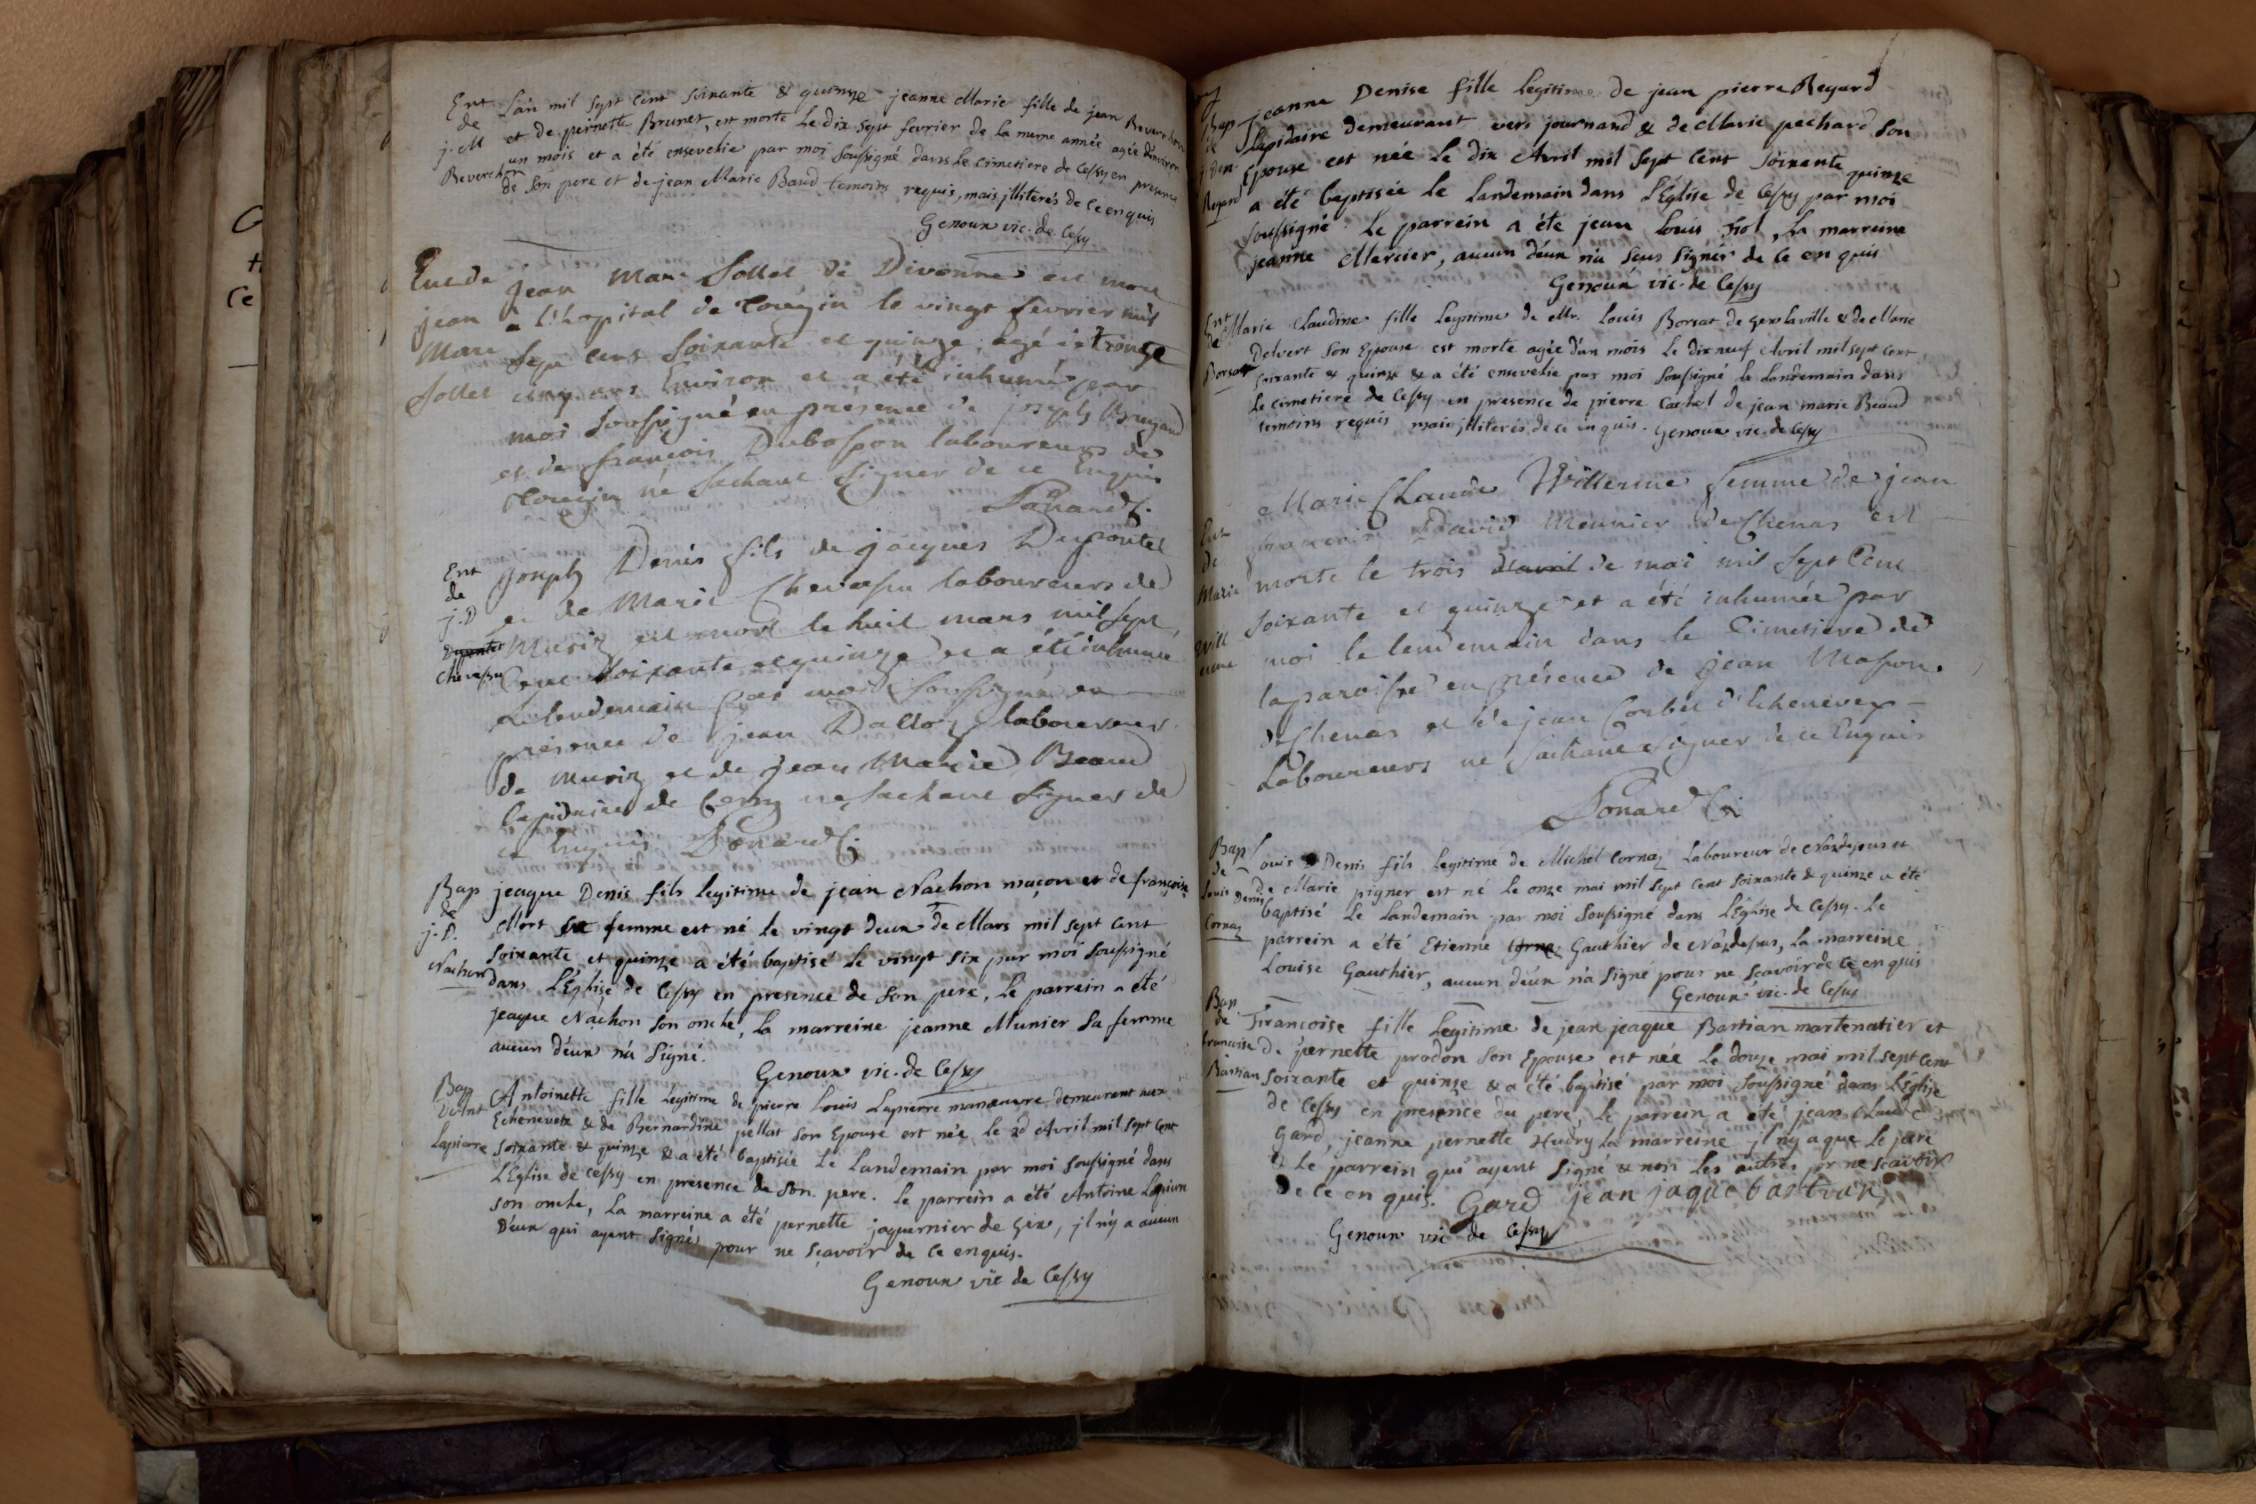 Ent de j. M Reverchon
L'an mil sept cent soixante & quinze jeanne Marie fille de jean Reverchon
et de pernette Brunet, est morte le dix sept fevrier de la meme année agée d'environ
un mois et a été ensevelie par moi soussigné dans le cimetiere de Cessy en presence
de son pere et de jean Marie Baud temoins requis, mais jlliterés de ce enquis
Genoux vic. de Cessy
Ent de jean Marc Sollet
jean Marc Sollet de Divonne est mort
a l'hopital de Tougin le vingt fevrier mil
sept cens soixante et quinze, agé de trente
cinq ans Environ et a été inhumé par
moi soussigné en présence de joseph
et de françois Dubosson laboureurs de
Tougin ne sachant signer de ce Enquis
Ponard C.
Ent de j. D Chevassu
joseph Denis fils de jacques Dupontet
et de Marie Chevassu laboureurs de
Muriz est mort le huit mars mil sept
Cent soixante et quinze et a été inhumé
Le lendemain par moi soussigné en
présence de jean Dalloz laboureur
de Muriz et de jean Marie Beaud
lapidaire de Cessy ne sachant signer de
ce Enquis Ponard C.
Bap de j. D. Nachon
jeaque Denis fils legitime de jean Nachon maçon et de françoise
Mort sa femme est né le vingt deux de Mars mil sept cent
soixante et quinze a été baptisé le vingt six par moi soussigné
dans L'Eglise de Cessy en presence de son pere, Le parrein a été
jeaque Nachon son oncle, La marreine jeanne Munier sa femme
aucun d'eux n'a signé.
Genoux vic. de Cessy
Bap d'Ant Lapierre
Antoinette fille legitime de pierre Louis Lapierre manœuvre demeurant aux
Echenevex & de Bernardine pellat son Epouse est née le 2d Avril mil sept cent
soixante & quinze & a été baptisée Le Landemain par moi soussigné dans
L'Eglise de Cessy en presence de son pere. Le parrein a été Antoine Lapierre
son oncle, La marreine a été pernette jaquernier de Gex, jl n'y a aucun
D'eux qui ayent signés pour ne sçavoir de ce enquis.
Genoux vic de Cessy
Bap de j. Den Regard
jeanne Denise fille legitime de jean pierre Regard
Lapidaire demeurant vers journand & de Marie pechard son
Epouse est née Le dix Avril mil sept cent soixante quinze
a été baptisée Le Landemain dans L'Eglise de Cessy par moi
soussigné. Le parrein a été jean Louis fiol, La marreine
jeanne Mercier, aucun d'eux n'a sçus signer de ce en quis
Genoux vic. de Cessy
Ent de Borsat
Marie Claudine fille legitime de Mr. Louis Borsat de Gex la ville & de Marie
Delvert son Epouse est morte agée d'un mois Le dix neuf Avril mil sept cent
soixante & quinze & a été ensevelie par moi soussigné le landemain dans
Le cimetiere de Cessy en presence de pierre & de jean marie Beaud
temoins requis mais jlliterés, de ce en quis. Genoux vic. de Cessy
Ent de Marie Willerme
Marie Claude Willerme femme de jean
françois David Meunier de Chenas est
morte le trois de mai mil sept Cent
soixante et quinze et a été inhumée par
moi le lendemain dans le Cimetiere de
la paroisse en présence de jean Masson
de Chenas et de jean Corbet d'Echenevex
Laboureurs ne sachant signer de ce Enquis
Ponard C.
Bap de Louis Denis Cornaz
Louis Denis fils legitime de Michel Cornaz Laboureur de et
De Marie pigner est né le onze mai mil sept cent soixante & quinze a été
baptisé Le Landemain par moi soussigné dans L'Eglise de Cessy. Le
parrein a été Etienne Gauthier de la marreine
Louise Gauthier, aucun d'eux n'a signé pour ne sçavoir de ce en quis
Genoux vic. de Cessy
Bap de francoise Bastian
Francoise fille Legitime de jean jeaque Bastian martenatier et
De pernette prodon son Epouse est née Le douze mai mil sept cent
soixante et quinze & a été baptisé par moi soussigné dans L'Eglise
de Cessy en presence du pere, Le parrein a été jean Claude
Gard, jeanne pernette Hudry la marreine jl n'y a que le pere
& Le parrein qui ayent signé & non les autres pr ne scavoir
De ce en quis. Gard jean jaque bastian
Genoux vic de Cessy